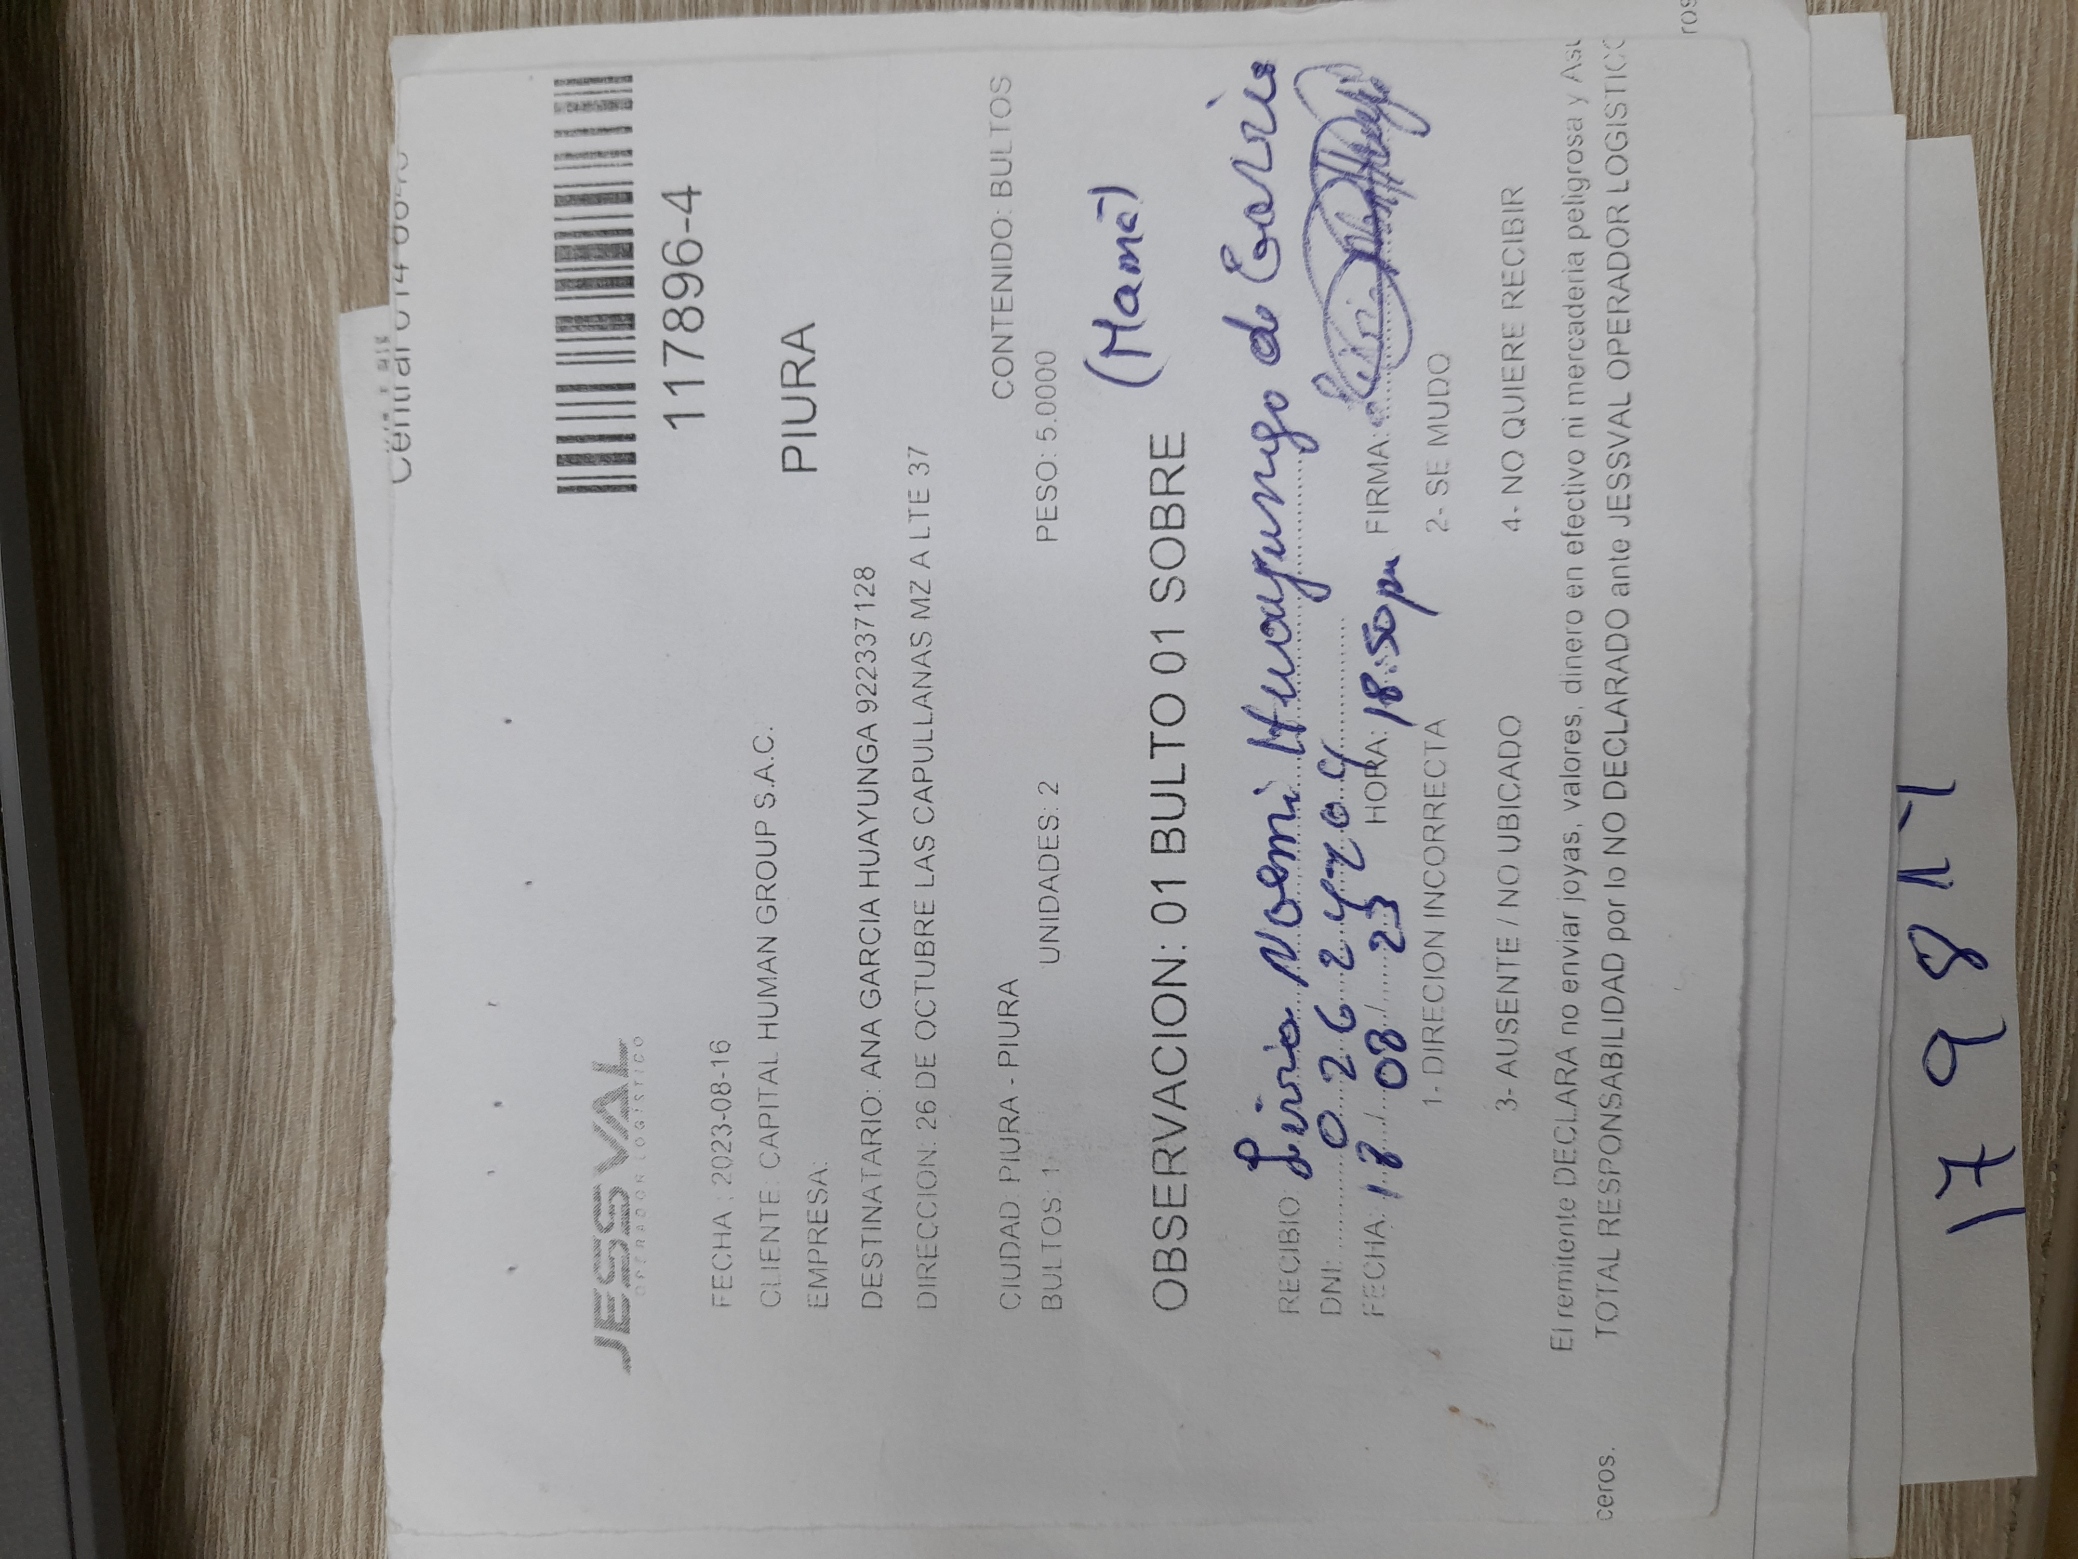 JESSVAL
OPERADOR LOGISTICO
117896-4
FECHA : 2023-08-16
CLIENTE : CAPITAL HUMAN GROUP S.A.C.
EMPRESA:
PIURA
DESTINATARIO: ANA GARCIA HUAYUNGA 922337128
DIRECCION: 26 DE OCTUBRE LAS CAPULLANAS MZ A LTE 37
CIUDAD: PIURA - PIURA
CONTENIDO: BULTOS
BULTOS: 1
UNIDADES: 2
PESO: 5.0000
(Mamá)
OBSERVACION: 01 BULTO 01 SOBRE
RECIBIO: Noemi Huayunga de Garcia
DNI:
FECHA: 18 / 08 / 23 HORA: 18:50pm FIRMA:
1- DIRECION INCORRECTA
2- SE MUDO
3- AUSENTE / NO UBICADO
4- NO QUIERE RECIBIR
El remitente DECLARA no enviar joyas, valores, dinero en efectivo ni mercaderia peligrosa y
TOTAL RESPONSABILIDAD por lo NO DECLARADO ante JESSVAL OPERADOR LOGISTIC
ceros.
ros